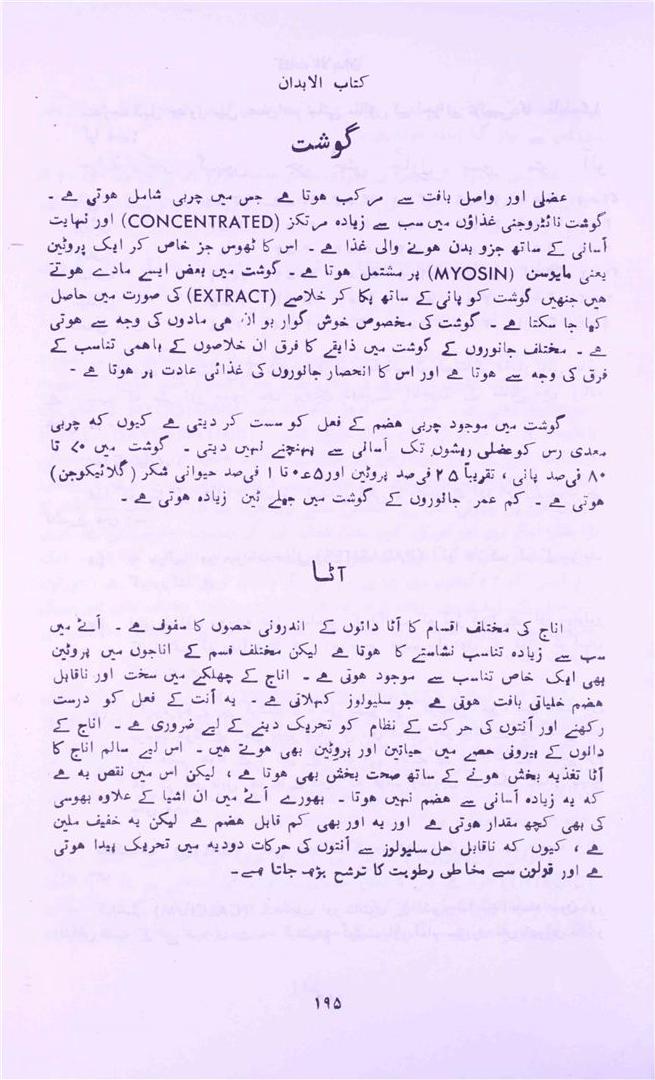 کتاب الابدان
گوشت
عضلی اور واصل بافت سے مرکب ہوتا ہے جس میں چربی شامل ہوتی ہے ۔
گوشت نائٹروجنی غذاؤں میں سب سے زیادہ مرتکز (CONCENTRATED) اور نہایت
آسانی کے ساتھ جزو بدن ہونے والی غذا ہے ۔ اس کا ٹھوس جز خاص کر ایک پروٹین
یعنی مایوسن (MYOSIN) پر مشتمل ہوتا ہے ۔ گوشت میں بعض ایسے مادے ہوتے
ہیں جنھیں گوشت کو پانی کے ساتھ پکا کر خلاصے (EXTRACT) کی صورت میں حاصل
کہا جا سکتا ہے ۔ گوشت کی مخصوص خوش گوار بو ان ہی مادوں کی وجہ سے ہوتی
ہے ۔ مختلف جانوروں کے گوشت میں ذایقے کا فرق ان خلاصوں کے باہمی تناسب کے
فرق کی وجہ سے ہوتا ہے اور اس کا انحصار جانوروں کی غذائی عادت پر ہوتا ہے ۔
گوشت میں موجود چربی ہضم کے فعل کو سست کر دیتی ہے کیوں کہ چربی
معدی رس کو عضلی ریشوں تک آسانی سے پہنچنے نہیں دیتی ۔ گوشت میں ۷۰ تا
۸۰ فی صد پانی ، تقریباً ۲۵ فی صد پروٹین اور ۰ء۵ تا ۱ فی صد حیوانی شکر (گلائیکوجن)
ہوتی ہے ۔ کم عمر جانوروں کے گوشت میں جیلے ٹین زیادہ ہوتی ہے ۔
آٹا
اناج کی مختلف اقسام کا آٹا دانوں کے اندرونی حصوں کا سفوف ہے ۔ آٹے میں
سب سے زیادہ تناسب نشاستے کا ہوتا ہے لیکن مختلف قسم کے اناجوں میں پروٹین
بھی ایک خاص تناسب سے موجود ہوتی ہے ۔ اناج کے چھلکے میں سخت اور ناقابل
ہضم خلیاتی بافت ہوتی ہے جو سلیولوز کہلاتی ہے ۔ یہ آنت کے فعل کو درست
رکھنے اور آنتوں کی حرکت کے نظام کو تحریک دینے کے لیے ضروری ہے ۔ اناج کے
دانوں کے بیرونی حصے میں حیاتین اور پروٹین بھی ہوتے ہیں ۔ اس لیے سالم اناج کا
آٹا تغذیہ بخش ہونے کے ساتھ صحت بخش بھی ہوتا ہے ، لیکن اس میں نقص یہ ہے
کہ یہ زیادہ آسانی سے ہضم نہیں ہوتا ۔ بھورے آٹے میں ان اشیا کے علاوہ بھوسی
کی بھی کچھ مقدار ہوتی ہے اور یہ اور بھی کم قابل ہضم ہے لیکن یہ خفیف ملین
ہے ، کیوں کہ ناقابل حل سلیولوز سے آنتوں کی حرکات دودیہ میں تحریک پیدا ہوتی
ہے اور قولون سے مخاطی رطوبت کا ترشح بڑھ جاتا ہے ۔
۱۹۵